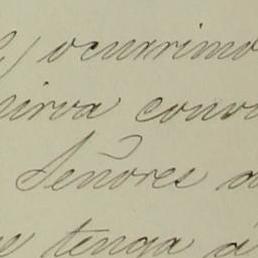 ocurrimo
sirva conv
Señores d
tenga á